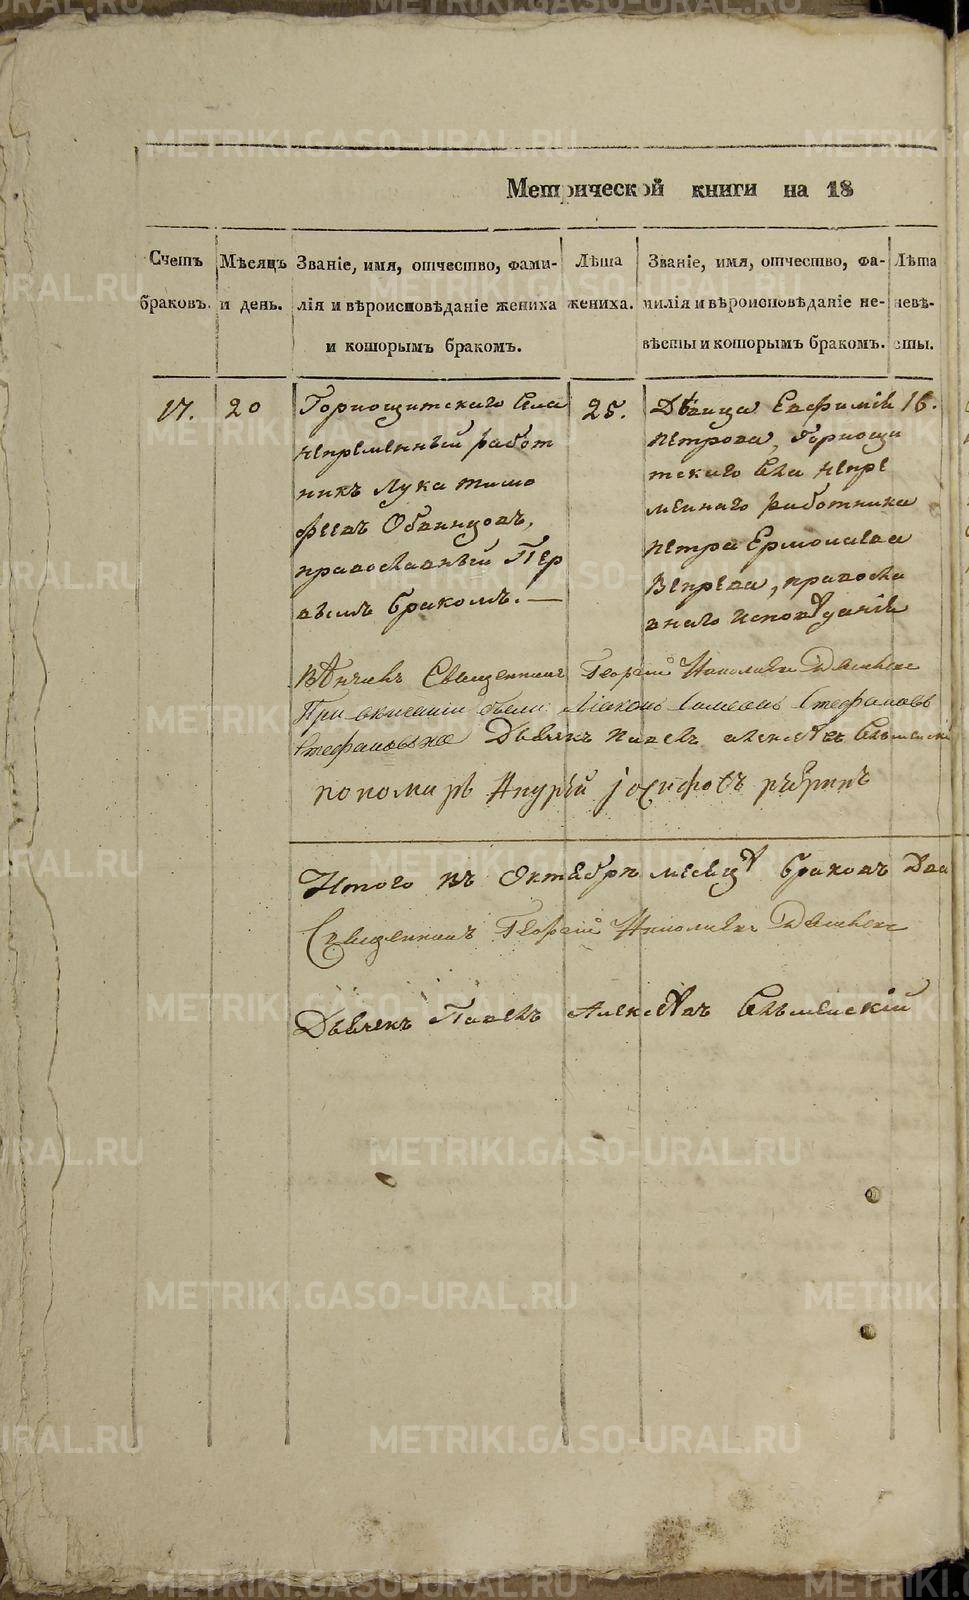 Метрической книги на 18
Счетъ браковъ.
Мѣсяцъ и день.
Званіе, имя, отчество, фами-
лія и вѣроисповѣданіе жениха
и которымъ бракомъ.
Лѣта
жениха.
Званіе, имя, отчество, фа-
милія и вѣроисповѣданіе не-
вѣсты и которымъ бракомъ.
Лѣта
невѣ-
сты.
17.
20
Горнощитскаго села
непременный работ
никъ Лука Тимо
феевъ Обвинцовъ,
православный пер
вымъ бракомъ.
25.
Дѣвица Евфимія
Петрова, Горнощи
тскаго села непре
меннаго работника
Петра Ермолаева
Вепрева, правосла
внаго исповѣданія
16.
Вѣнчалъ Священникъ Георгій
При венчаніи были: Діаконъ Стефановъ
Дьячекъ Павелъ Алексѣевъ
пономарь Іосифовъ
Итого въ Октябрѣ месяцѣ браковъ два
Священникъ Георгій
Дьячекъ Павелъ Алексѣевъ
METRIKI.GASO-URAL.RU